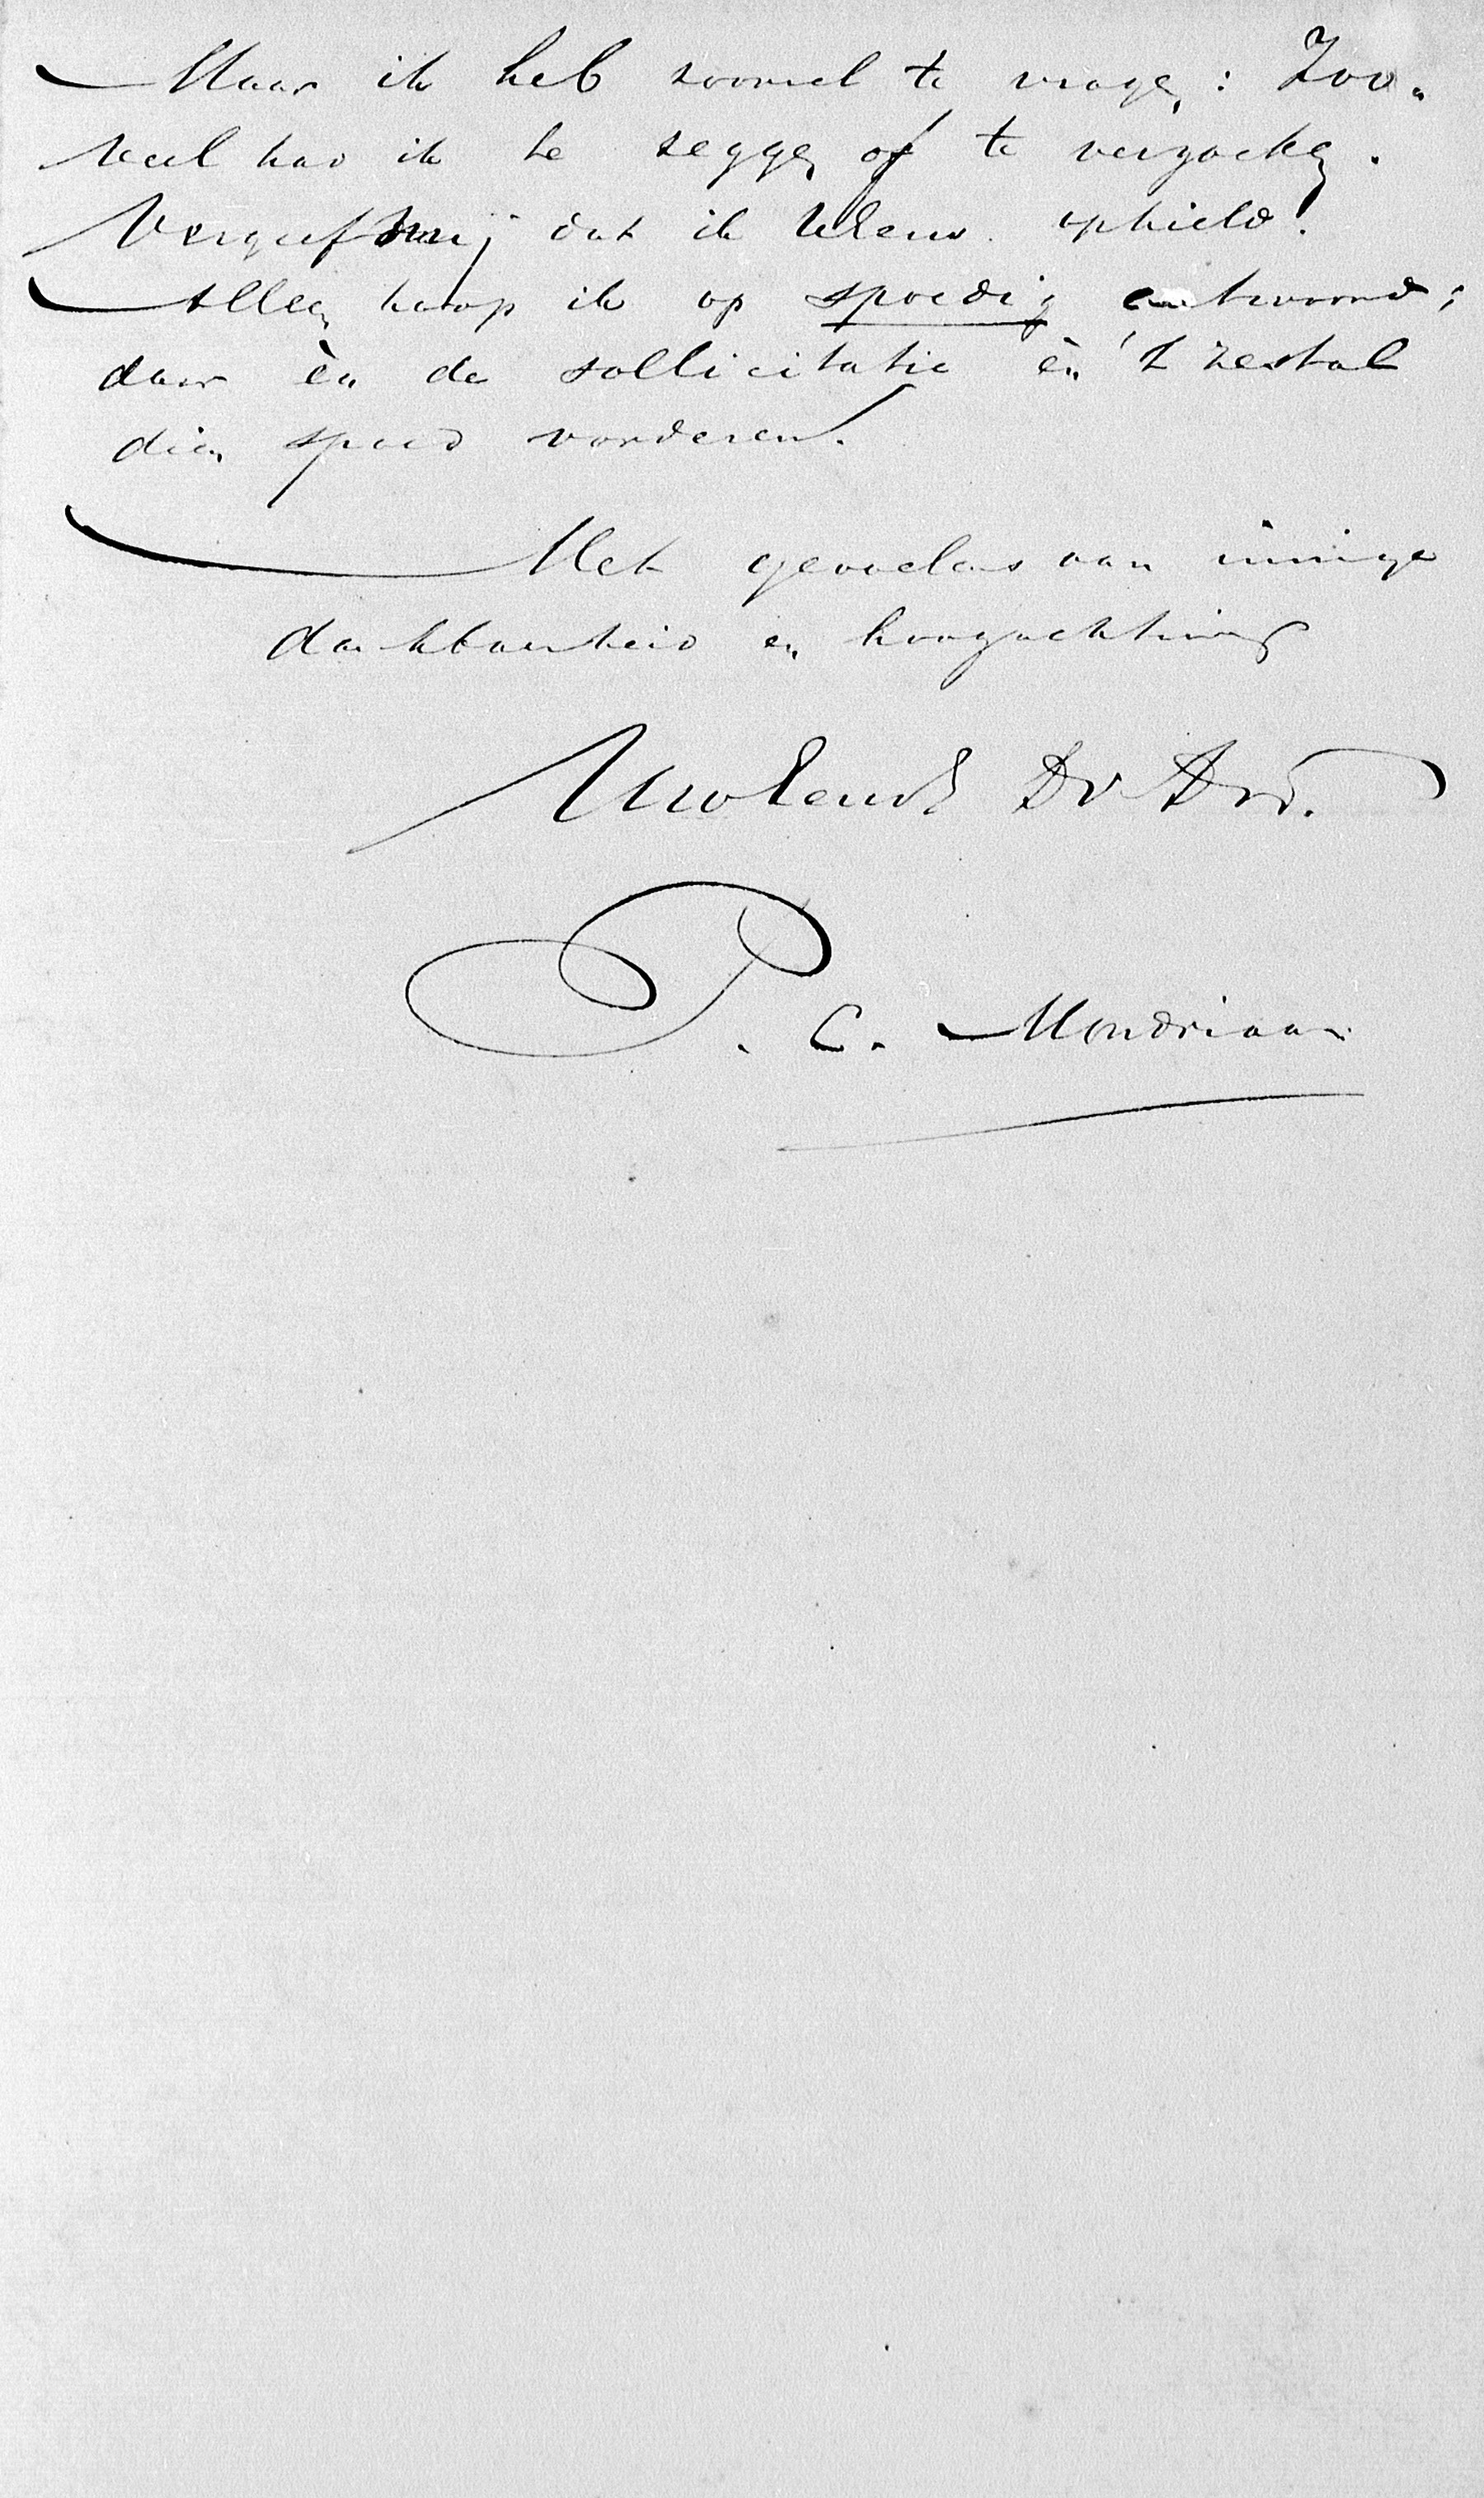 Maar ik heb zooveel te vragen: Zoo-
veel had ik te zeggen of te verzoeken.
Vergeef mij dat ik UEerw. ophield!
Alleen hoop ik op spoedig antwoord;
daar èn de sollicitatie èn 't
dien spoed vorderen.
Met gevoelens van innige
dankbaarheid en hoogachting
UwEerw Dv Drd.
P. C. Mondriaan